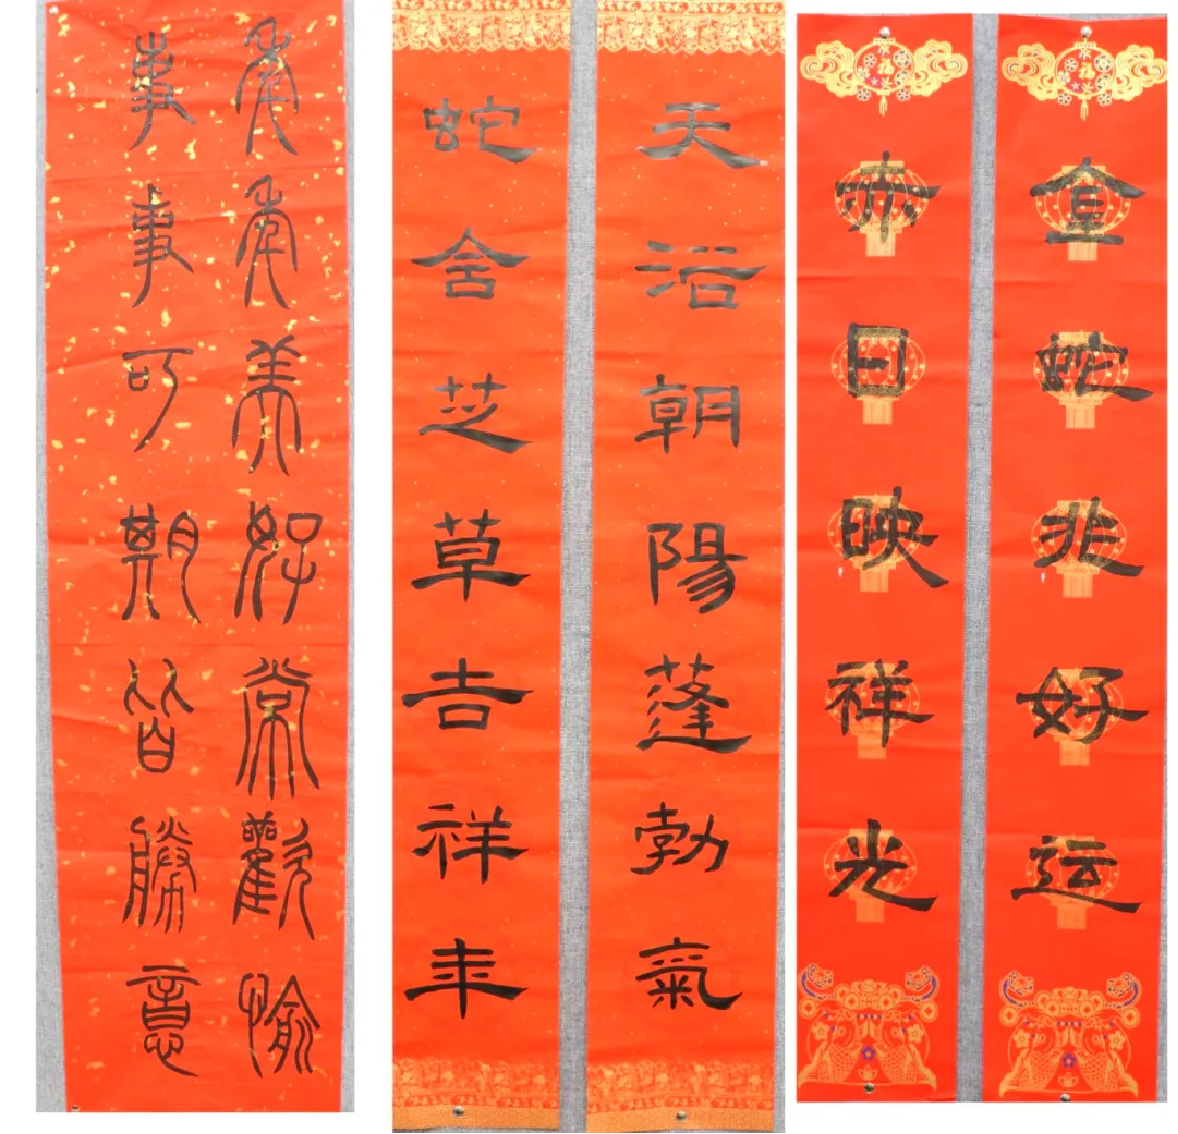 金蛇兆好运
赤日映祥光
天浴朝陽蓬勃氣
蛇含芝草吉祥年
年年美好常歡愉
事事可期皆勝意
福
福